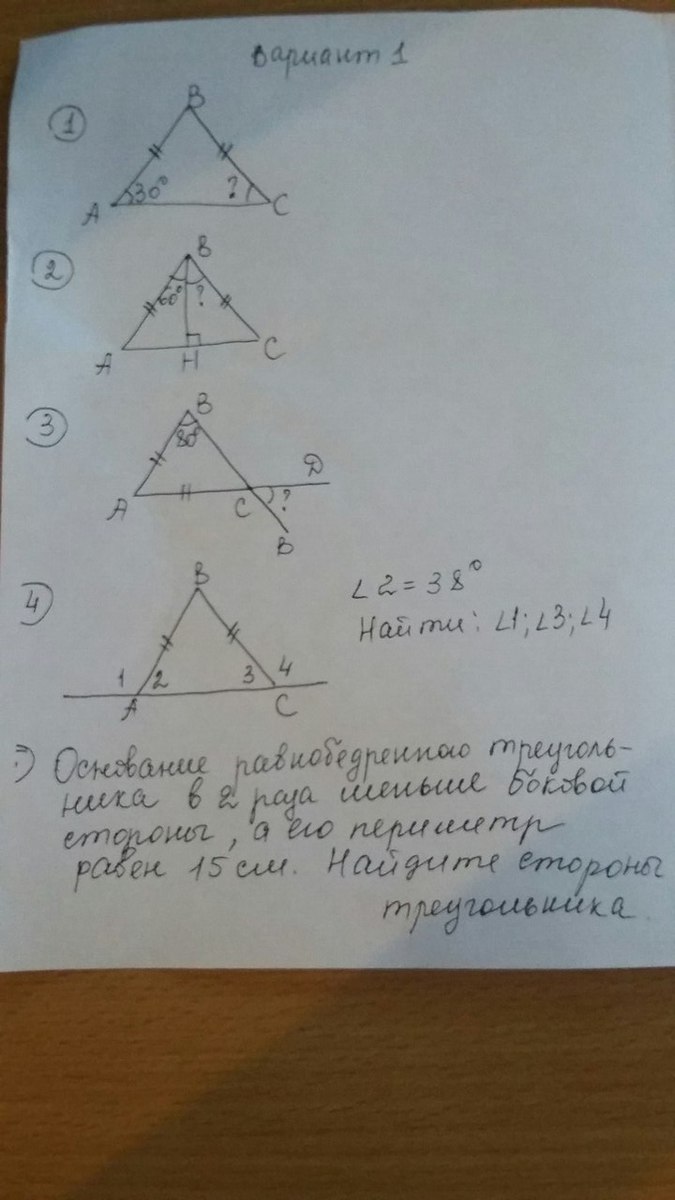 Вариант 1
1
B
A 30° ? C
2
B
60° ?
A H C
3
B
80°
A C D ?
B
4)
B
1 2 3 4
A C
∠2 = 38°
Найти: ∠1; ∠3; ∠4
:) Основание равнобедренного треуголь-
ника в 2 раза меньше боковой
стороны, а его периметр
равен 15 см. Найдите стороны
треугольника.